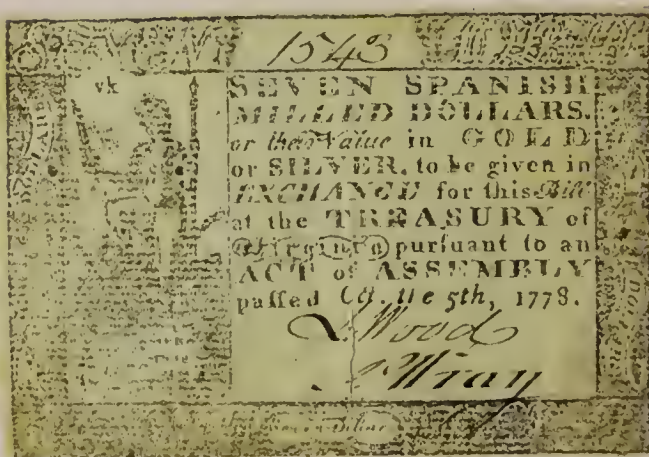 1543
vk
SEVEN SPANISH
MILLED DOLLARS,
or the Value in GOLD
or SILVER, to be given in
EXCHANGE for this Bill
at the TREASURY of
Virginia purſuant to an
ACT of ASSEMBLY
paſſed 5th, 1778.
Wood
Wray